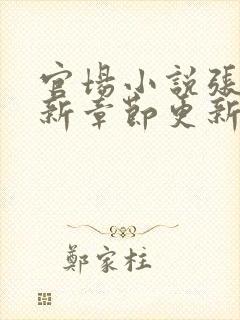 官場小説張
新章節更新
鄭家柱